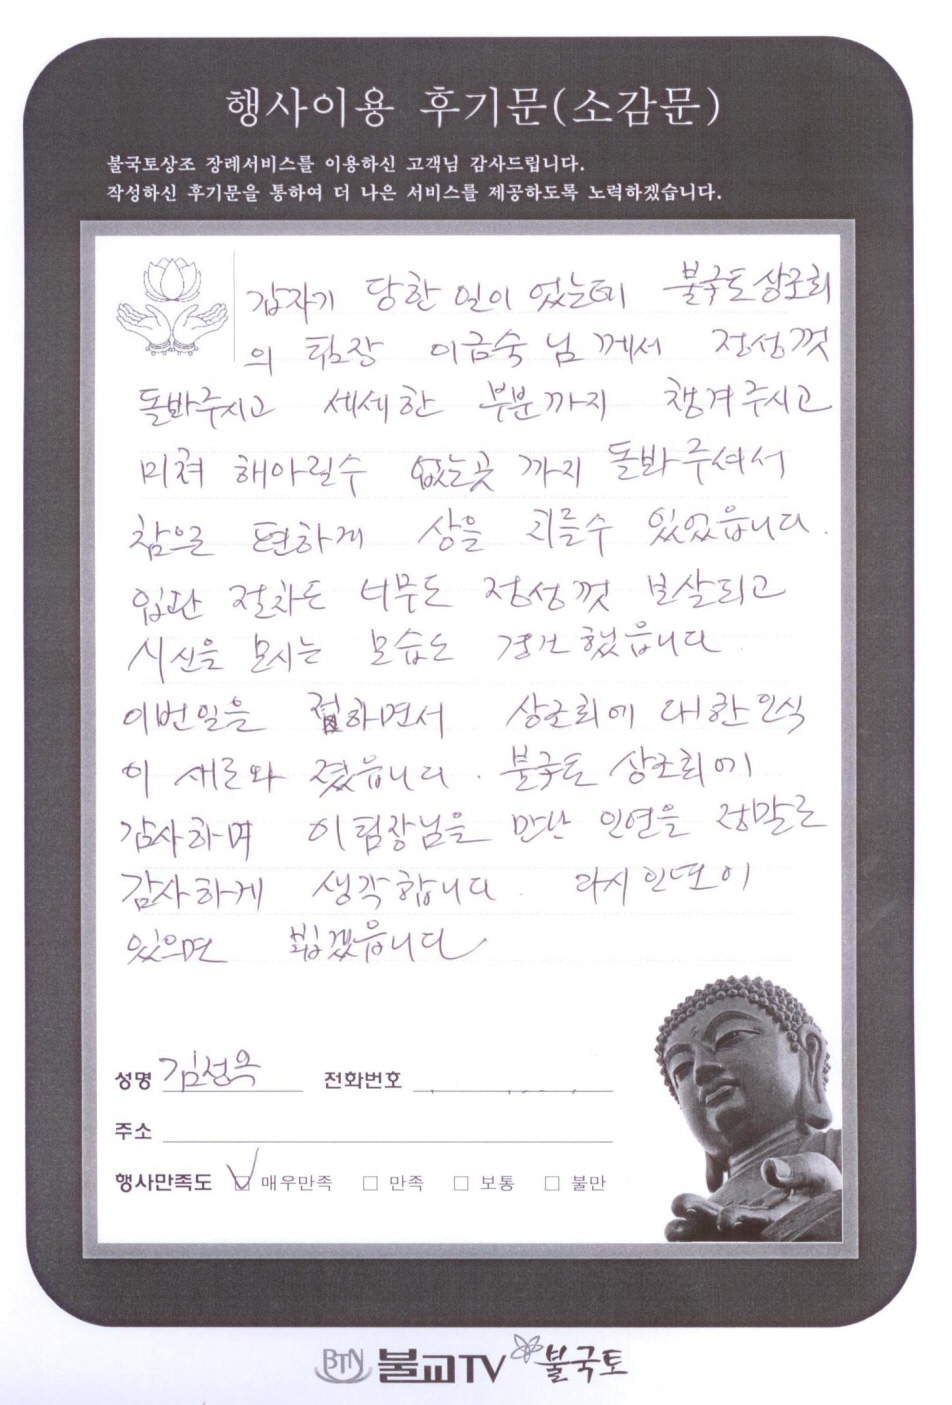 행사이용 후기문(소감문)
불국토상조 장례서비스를 이용하신 고객님 감사드립니다.
작성하신 후기문을 통하여 더 나은 서비스를 제공하도록 노력하겠습니다.
갑자기 당한 일이 었는데 불국토상조회
의 팀장 이금숙 님 께서 정성껏
돌봐주시고 세세한 부분까지 챙겨주시고
미쳐 해아릴수 없는곳 까지 돌봐주셔서
참으로 편하게 상을 치를수 있었읍니다.
입관 절차도 너무도 정성껏 보살피고
시신을 모시는 모습도 경건했읍니다.
이번일을 접하면서 상조회에 대한 인식
이 새로와 졌읍니다. 불국토 상조회에
감사하며 이팀장님을 만난 인연을 정말로
감사하게 생각합니다. 다시 인연이
있으면 뵙겠읍니다
성명 김성옥 전화번호
주소
행사만족도 매우만족 만족 보통 불만
BTN 불교TV 불국토